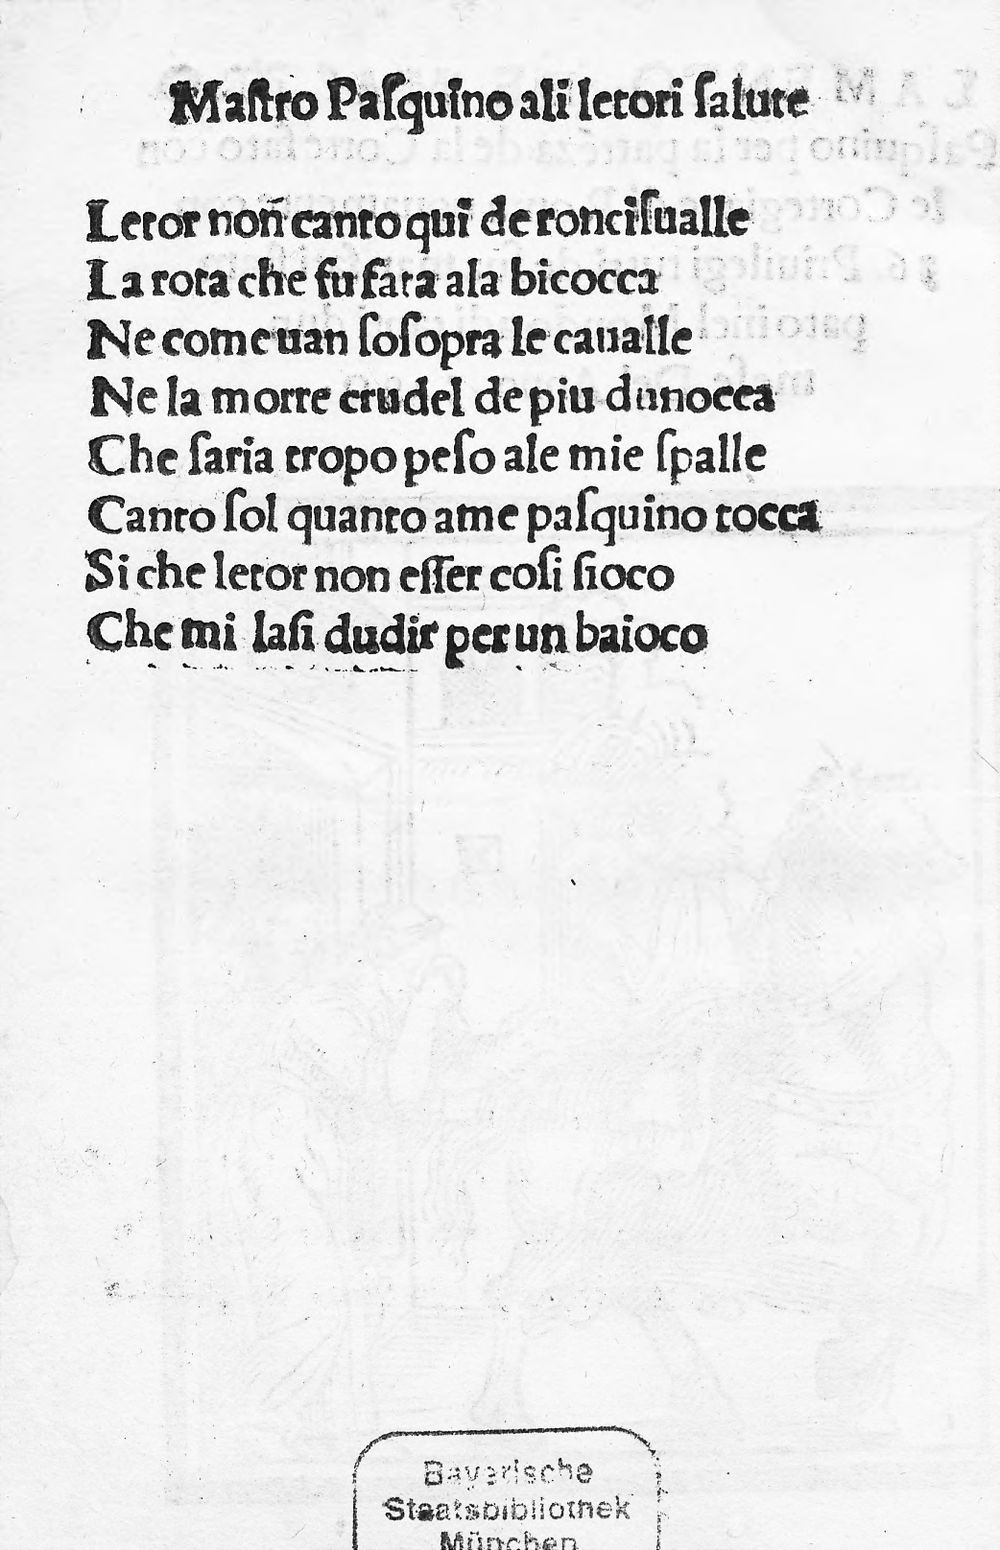 Maſtro Paſquino ali letori ſalute
Letor non canto qui de ronciſualle
La rota che fu fata ala bicocca
Ne come uan ſoſopra le caualle
Ne la morte crudel de piu dunocca
Che ſaria tropo peſo ale mie ſpalle
Canto ſol quanto ame paſquino tocca
Si che letor non eſſer coſi ſioco
Che mi laſi dudir per un baioco
Bayerische
Staatsbibliothek
München